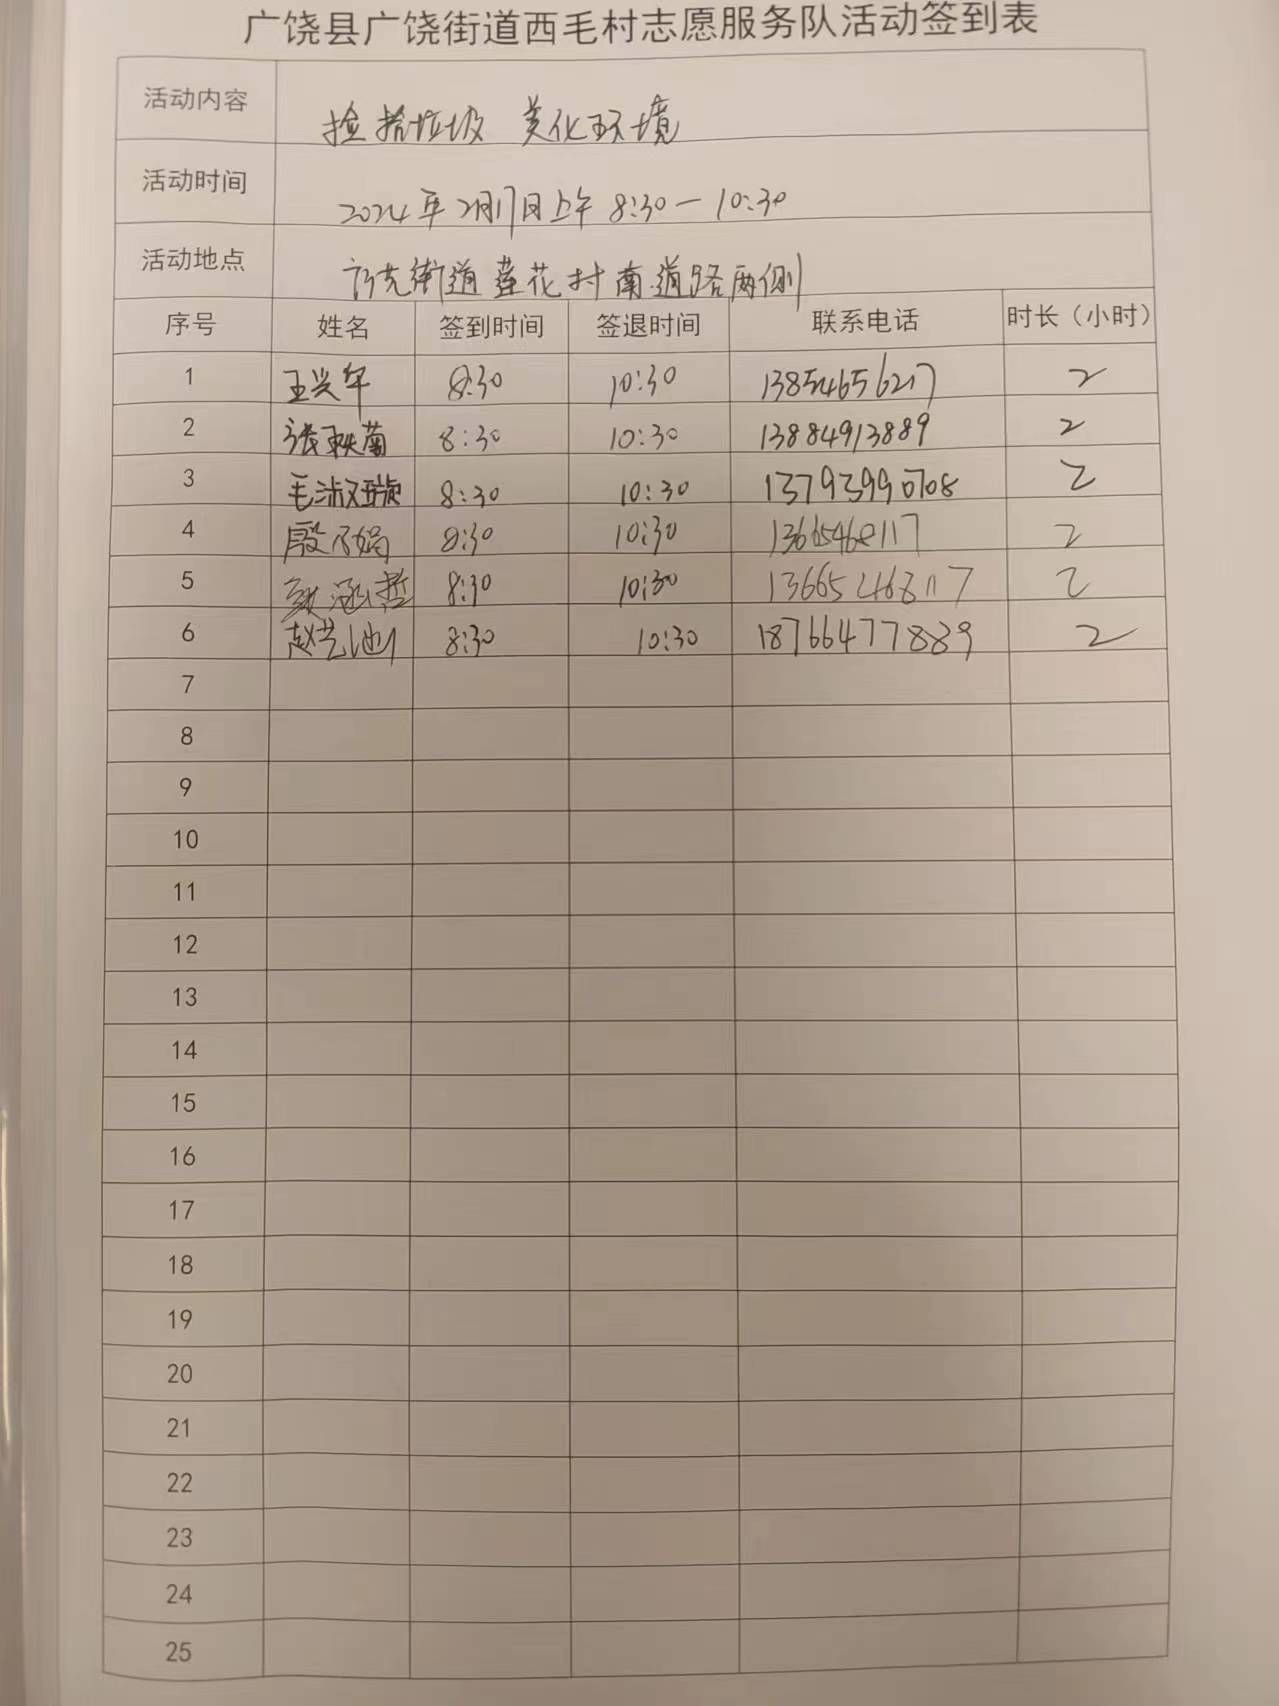 广饶县广饶街道西毛村志愿服务队活动签到表
活动内容 捡拾垃圾 美化环境
活动时间 2024年2月17日上午 8:30-10:30
活动地点 街道莲花村南道路两侧
序号 姓名 签到时间 签退时间 联系电话 时长（小时）
1 王兴年 8:30 10:30 13854656217 2
2 张秋菊 8:30 10:30 13884913889 2
3 毛淑 8:30 10:30 13793990708 2
4 殷 8:30 10:30 13665468117 2
5 涵哲 8:30 10:30 13665468117 2
6 赵艺 8:30 10:30 18766477889 2
7
8
9
10
11
12
13
14
15
16
17
18
19
20
21
22
23
24
25